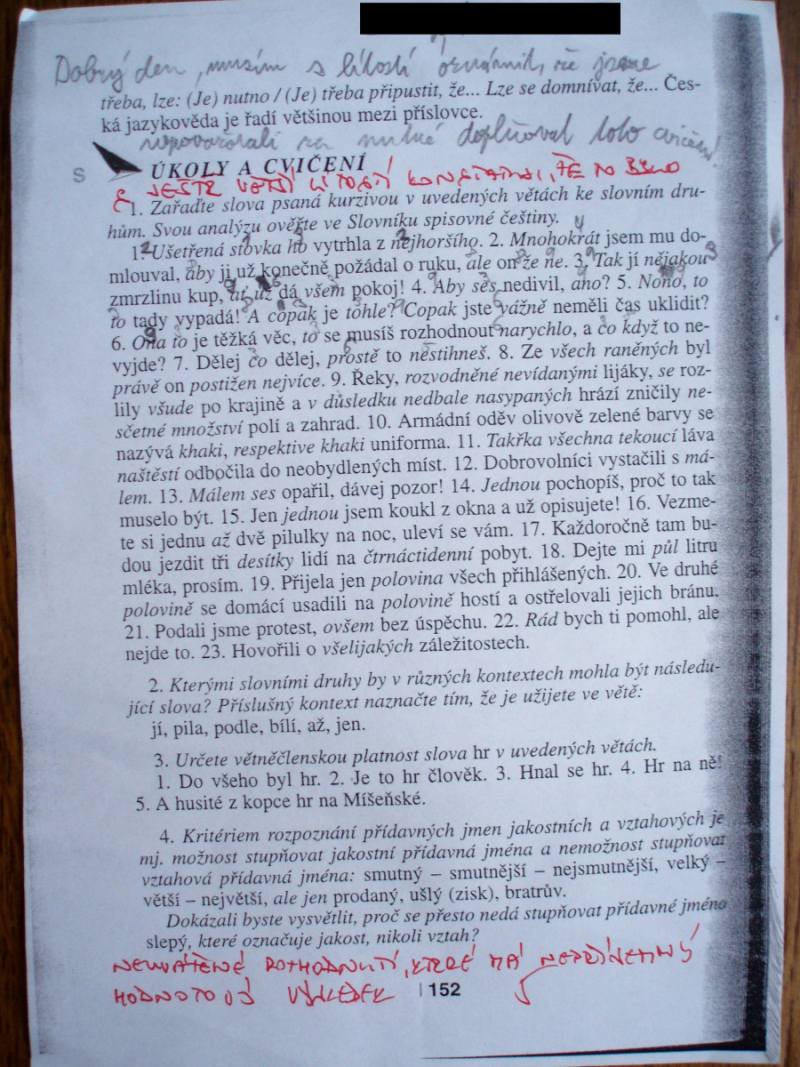 Dobrý den, musím s lítostí oznámit, že jsme
třeba, lze: (Je) nutno / (Je) třeba připustit, že... Lze se domnívat, že... Čes-
ká jazykověda je řadí většinou mezi příslovce.
nepovažovali za nutné doplňovat toto cvičení!
S
ÚKOLY A CVIČENÍ
S JEŠTĚ VĚTŠÍ LÍTOSTÍ KONSTATUJI, ŽE TO BYLO
1. Zařaďte slova psaná kurzivou v uvedených větách ke slovním dru-
hům. Svou analýzu ověřte ve Slovníku spisovné češtiny.
1. Ušetřená stovka ho vytrhla z nejhoršího. 2. Mnohokrát jsem mu do-
mlouval, aby ji už konečně požádal o ruku, ale on že ne. 3. Tak jí nějakou
zmrzlinu kup, ať už dá všem pokoj! 4. Aby ses nedivil, ano? 5. Nono, to
to tady vypadá! A copak je tohle? Copak jste vážně neměli čas uklidit?
6. Ona to je těžká věc, to se musíš rozhodnout narychlo, a co když to ne-
vyjde? 7. Dělej co dělej, prostě to nestihneš. 8. Ze všech raněných byl
právě on postižen nejvíce. 9. Řeky, rozvodněné nevídanými lijáky, se roz-
lily všude po krajině a v důsledku nedbale nasypaných hrází zničily ne-
sčetné množství polí a zahrad. 10. Armádní oděv olivově zelené barvy se
nazývá khaki, respektive khaki uniforma. 11. Takřka všechna tekoucí láva
naštěstí odbočila do neobydlených míst. 12. Dobrovolníci vystačili s má-
lem. 13. Málem ses opařil, dávej pozor! 14. Jednou pochopíš, proč to tak
muselo být. 15. Jen jednou jsem koukl z okna a už opisujete! 16. Vezmě-
te si jednu až dvě pilulky na noc, uleví se vám. 17. Každoročně tam bu-
dou jezdit tři desítky lidí na čtrnáctidenní pobyt. 18. Dejte mi půl litru
mléka, prosím. 19. Přijela jen polovina všech přihlášených. 20. Ve druhé
polovině se domácí usadili na polovině hostí a ostřelovali jejich bránu.
21. Podali jsme protest, ovšem bez úspěchu. 22. Rád bych ti pomohl, ale
nejde to. 23. Hovořili o všelijakých záležitostech.
2. Kterými slovními druhy by v různých kontextech mohla být následu-
jící slova? Příslušný kontext naznačte tím, že je užijete ve větě:
jí, pila, podle, bílí, až, jen.
3. Určete větněčlenskou platnost slova hr v uvedených větách.
1. Do všeho byl hr. 2. Je to hr člověk. 3. Hnal se hr. 4. Hr na ně!
5. A husité z kopce hr na Míšeňské.
4. Kritériem rozpoznání přídavných jmen jakostních a vztahových je
mj. možnost stupňovat jakostní přídavná jména a nemožnost stupňovat
vztahová přídavná jména: smutný – smutnější – nejsmutnější, velký –
větší – největší, ale jen prodaný, ušlý (zisk), bratrův.
Dokázali byste vysvětlit, proč se přesto nedá stupňovat přídavné jméno
slepý, které označuje jakost, nikoli vztah?
NEUVÁŽENÉ ROZHODNUTÍ, KTERÉ MÁ NEPŘÍJEMNÝ
HODNOTOVÝ VÝSLEDEK
152